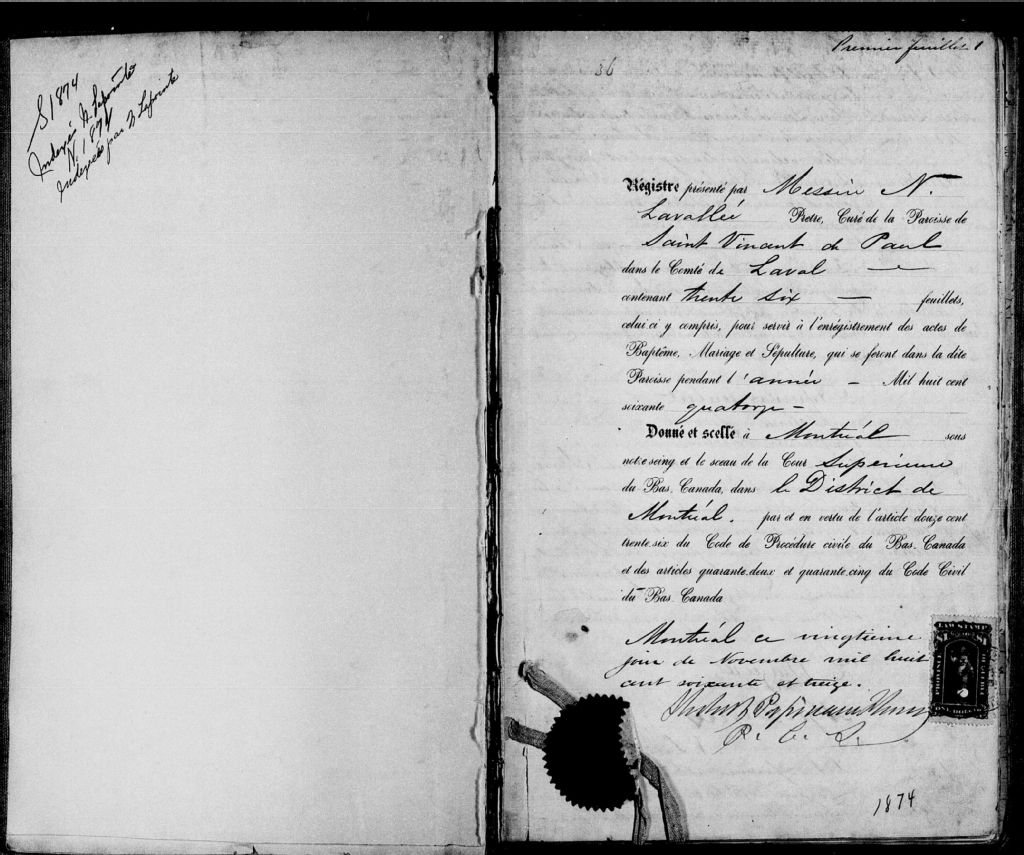 S 1874
Indexés N. Lapointe
N. 1874
Indexés par N Lapointe
Premier feuillet 1
36
Régistre présenté par Messire N.
Lavallée Prêtre, Curé de la Paroisse de
Saint Vincent de Paul
dans le Comté de Laval —
contenant trente six — feuillets,
celui.ci y compris, pour servir à l'enrégistrement des actes de
Baptême, Mariage et Sépulture, qui se feront dans la dite
Paroisse pendant l'année — Mil huit cent
soixante quatorze —
Donné et scellé à Montréal sous
notre seing et le sceau de la Cour Supérieure
du Bas. Canada, dans le District de
Montréal. par et en vertu de l'article douze cent
trente.six du Code de Procédure civile du Bas. Canada
et des articles quarante.deux et quarante.cinq du Code Civil
du Bas. Canada
Montréal ce vingtième
jour de Novembre mil huit
cent soixante et treize.
Papineau
P. C. S.
LAW STAMP
$1 $1
PROVINCE DE QUEBEC
ONE DOLLAR
1874